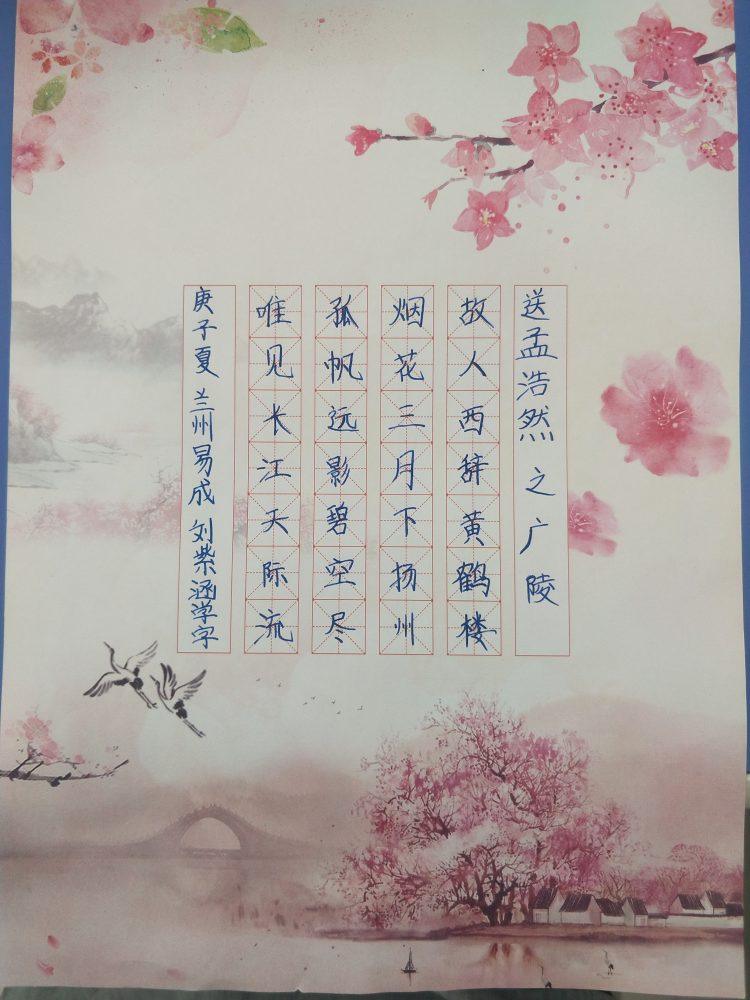 送孟浩然之广陵
故人西辞黄鹤楼
烟花三月下扬州
孤帆远影碧空尽
唯见长江天际流
庚子夏 兰州易成 刘紫涵学字